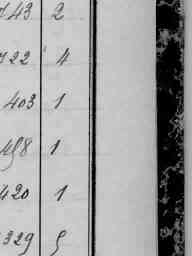 743 2
722 4
403 1
498 1
420 1
329 5